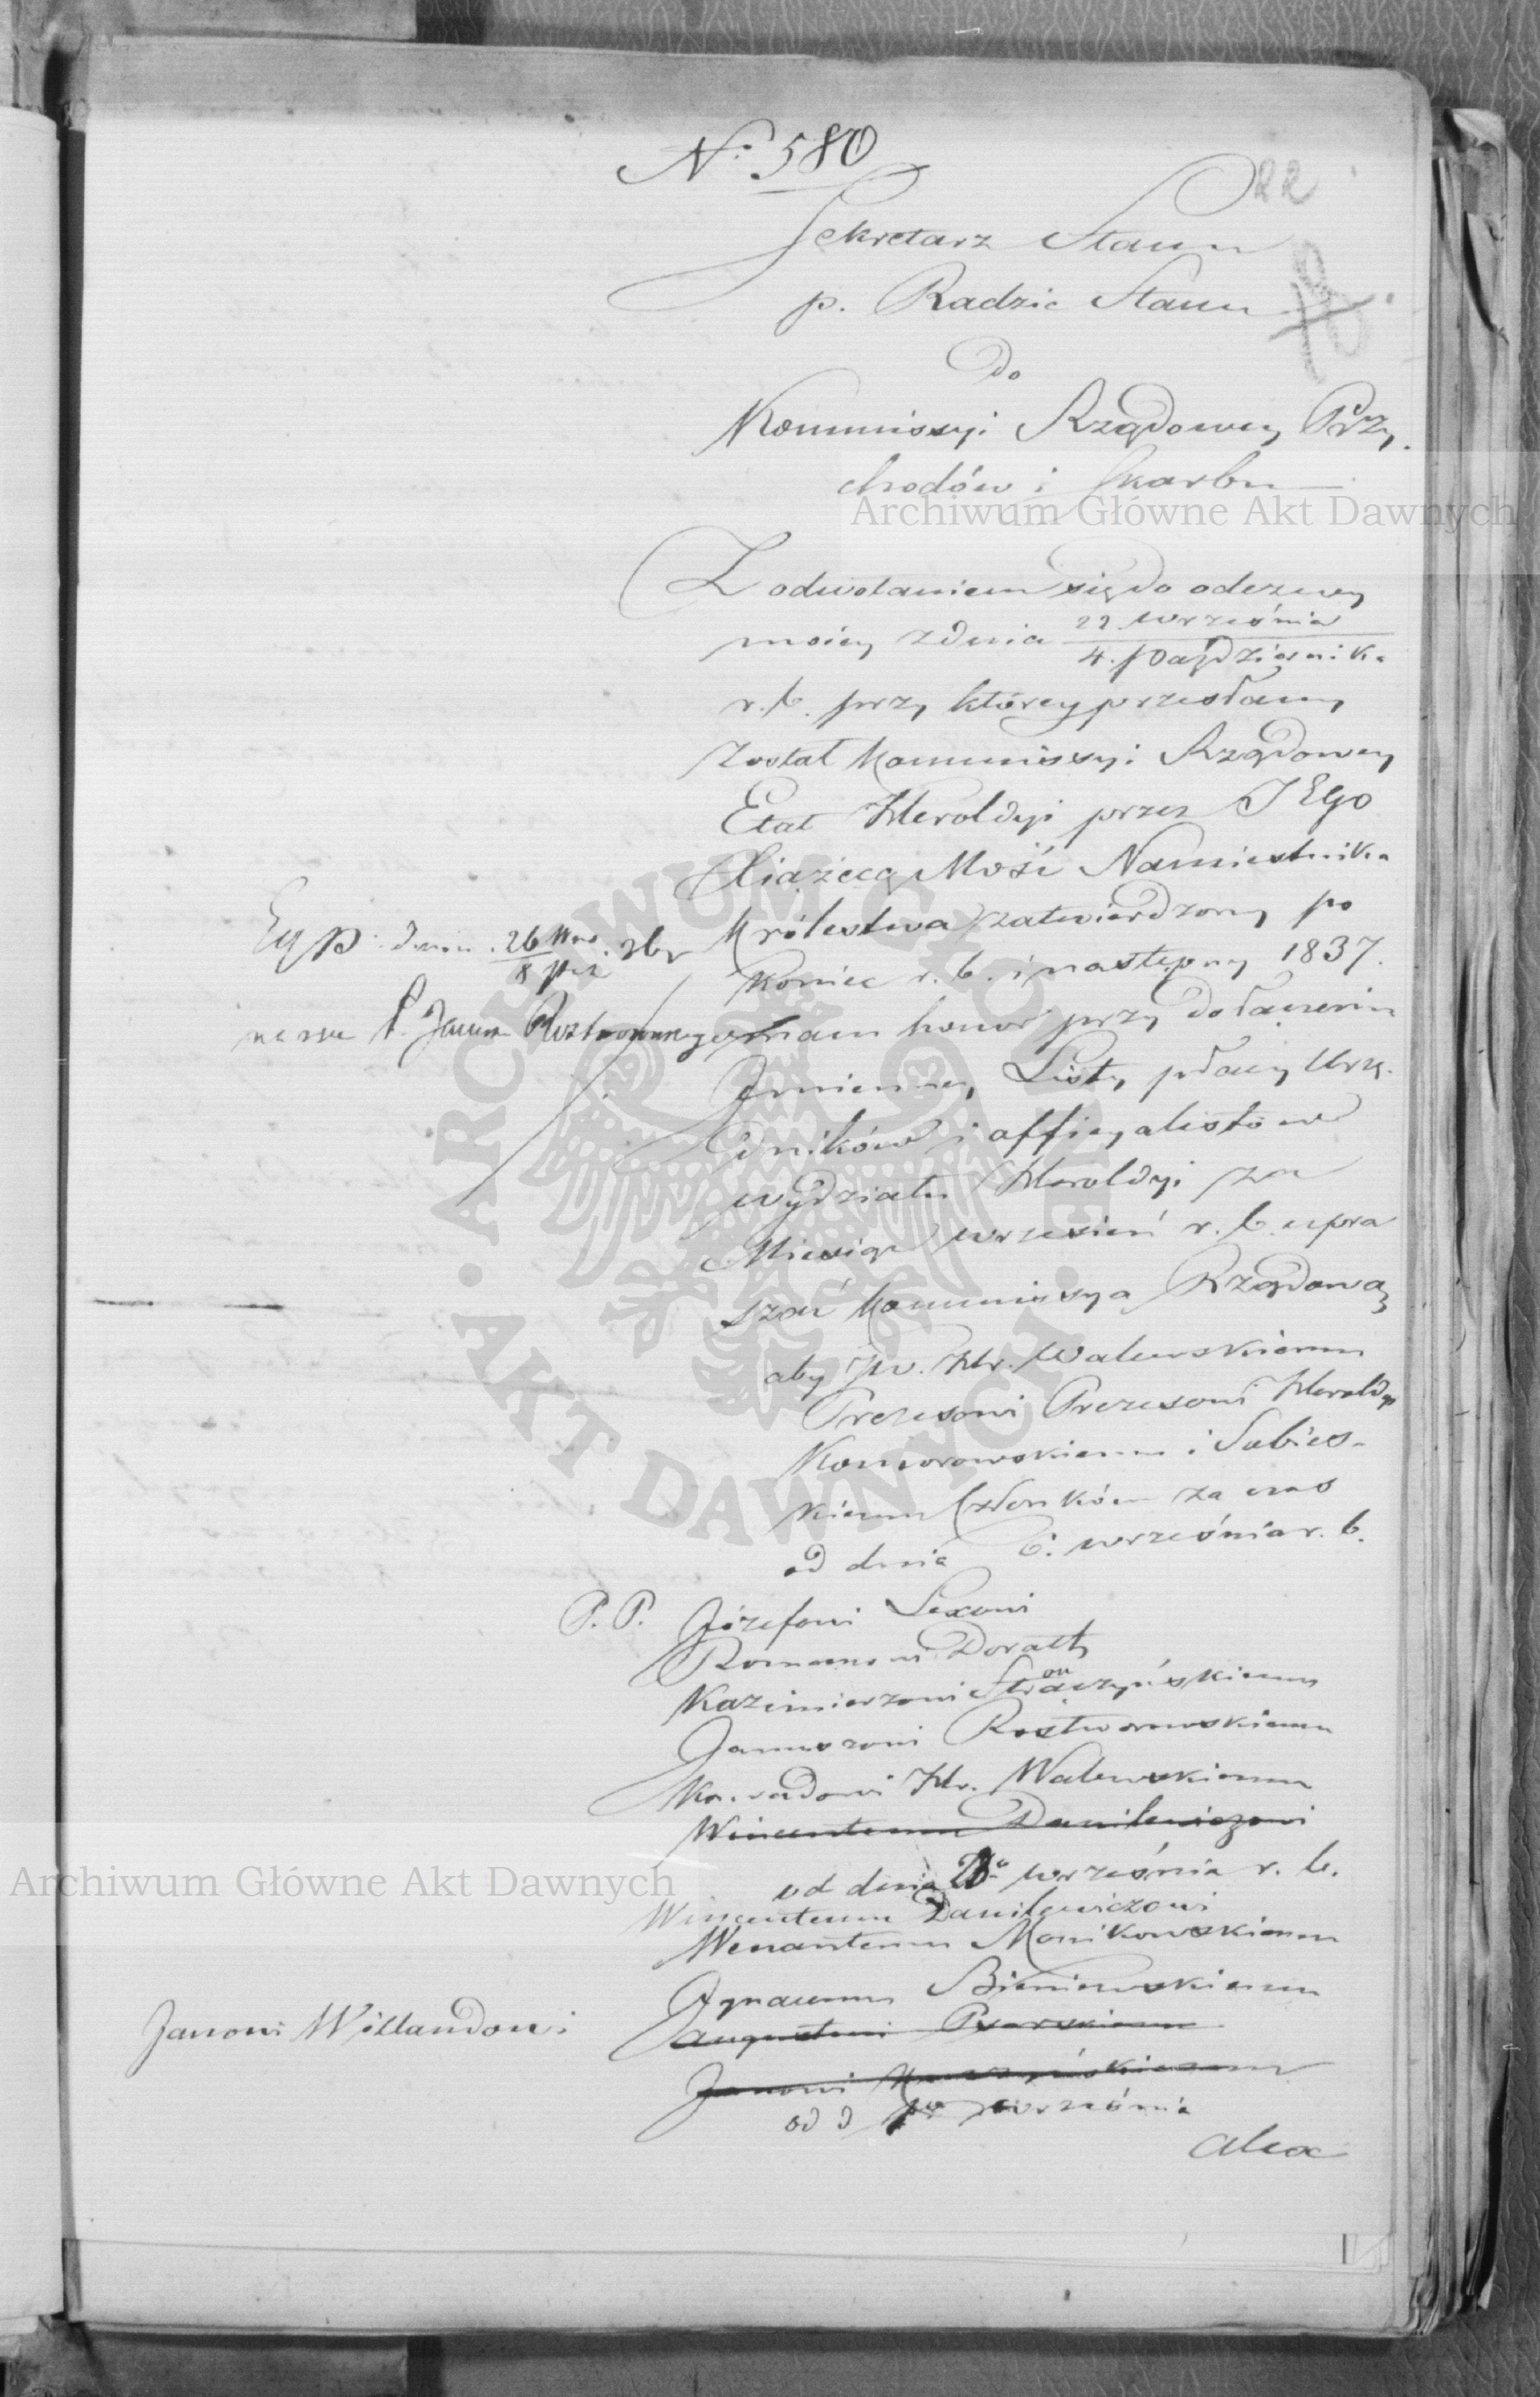 N: 580
22
Sekretarz Stanu
p. Radzie Stanu
do
Kommissyi Rządowey Przy-
chodów i Skarbu
Z odwołaniem się do odezwy
moiey z dnia 22 września / 4. Października
r. b. przy którey przesłany
został Kommissyi Rządowey
Etat Heroldyi przez JEgo
Xiążęcą Mość Namiestnika
Królestwa zatwierdzony po
koniec r. b. i następny 1837.
mam honor przy dołączeniu
Imienney Listy płacy Urzę-
dników i officyalistów
wydziału Heroldyi za
Miesiąc wrzesień r. b. upra
szać Kommissyą Rządową
aby JW. Hr. Walewskiemu
Prezesowi Prezesowi Heroldyi
Komorowskiemu i Sobies-
kiemu Członkom za czas
od dnia 6. września r. b.
Exp: dnia 26 Wrz / 8 Paź
na ręce P. Janusza Roztworowskiego
P. P. Józefowi Lexowi
Romanowi Doratt
Kazimierzowi Stronczyńskiemu
Januszowi Rostworowskiemu
Konradowi Hr. Walewskiemu
Wincentemu Danilewiczowi
od dnia września r. b.
Wincentemu Danilewiczowi
Wenantemu Monikowskiemu
Ignacemu Bieniewskiemu
Janowi Willandowi
Augustowi Psarskiemu
Janowi
od d września
Alex
Archiwum Główne Akt Dawnych
Archiwum Główne Akt Dawnych
ARCHIWUM GŁÓWNE
AKT DAWNYCH